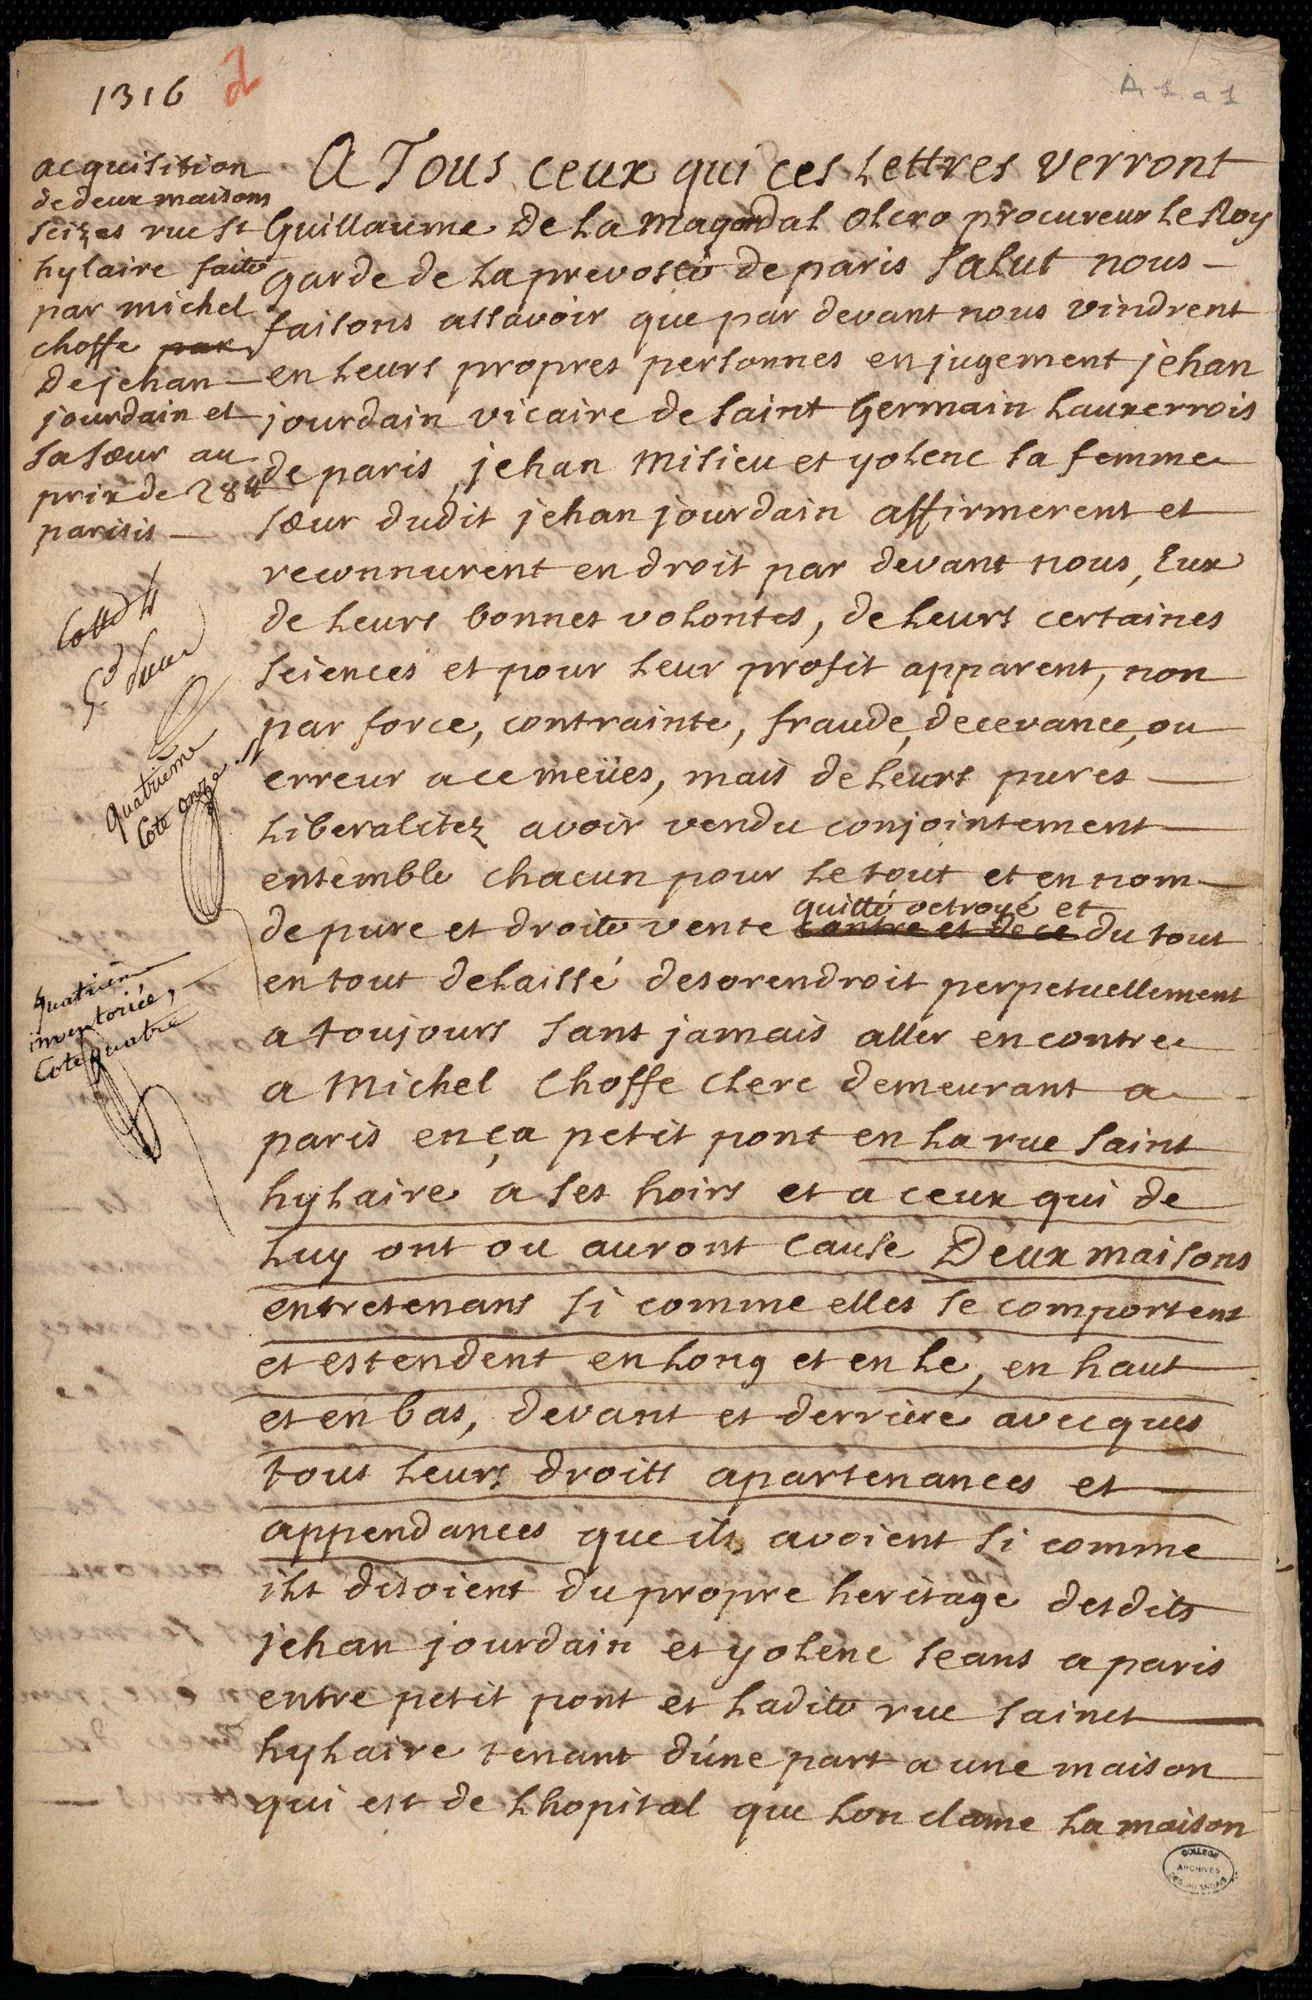 1316 2
A. 1. a 1
acquisition
de deux maisons
seizes rue st
hylaire faite
par michel
choffe par
de jehan
jourdain et
sa sœur au
prix de 28 tt
parisis
Cotté
quatrième
Cote onze
quatrieme
inventoriée,
Cote quatre
A Tous ceux qui ces Lettres verront
Guillaume De La Magdal Clero procureur Le Roy
garde de La prevosté de paris Salut nous
faisons assavoir que par devant nous vindrent
en Leurs propres personnes en jugement jehan
jourdain vicaire de Saint Germain Lauxerrois
de paris, jehan Milieu et yolene sa femme
sœur dudit jehan jourdain affirmerent et
reconnurent en droit par devant nous, Eux
de Leurs bonnes volontes, de Leurs certaines
sciences et pour Leur profit apparent, non
par force, contrainte, fraude, decevance, ou
erreur a ce meües, mais de Leurs pures
Liberalitez avoir vendu conjointement
entemble chacun pour Le tout et en nom
quitté octroyé et
de pure et droite vente contre et de ce du tout
en tout delaissé desorendroit perpetuellement
a toujours sans jamais aller encontre
a Michel Choffe Clerc demeurant a
paris en ça petit pont en La rue Saint
hylaire a ses hoirs et a ceux qui de
Luy ont ou auront Cause Deux maisons
entretenans si comme elles se comportent
et estendent en Long et en Lé, en haut
et en bas, devant et derriere avecques
tous Leurs droits apartenances et
appendances que ils avoient si comme
ils disoient du propre heritage desdits
jehan jourdain et yolene seans a paris
entre petit pont et Ladite rue sainct
hylaire tenant d'une part a une maison
qui est de Lhopital que Lon clame La maison
COLLEGE
ARCHIVES
DES IRLANDAIS